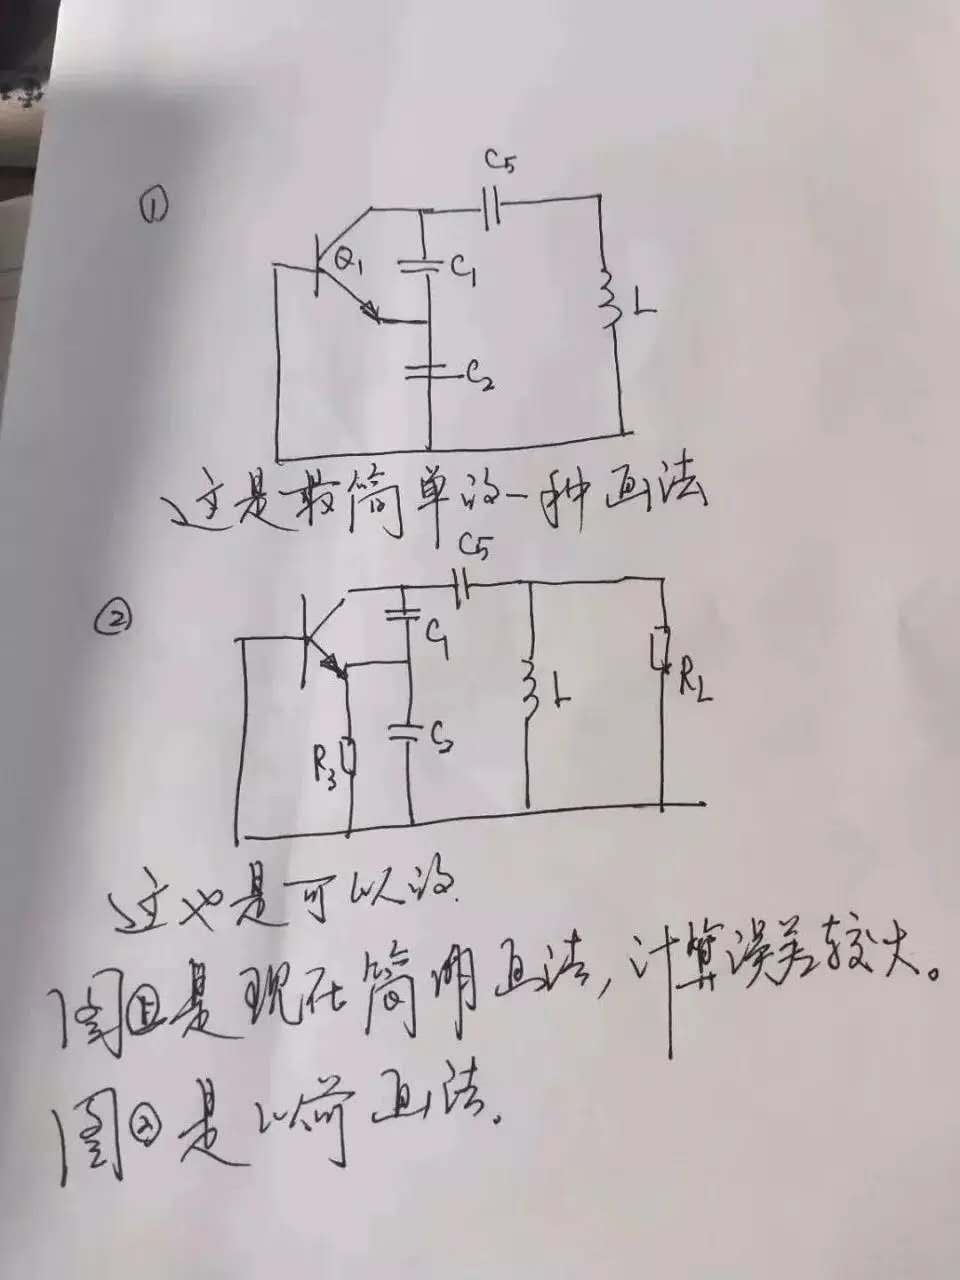 ①
C5
Q1
C1
L
C2
这是最简单的一种画法
C5
②
C1
L
RL
R3
C2
这也是可以的.
图①是现在简明画法,计算误差较大。
图②是以前画法.